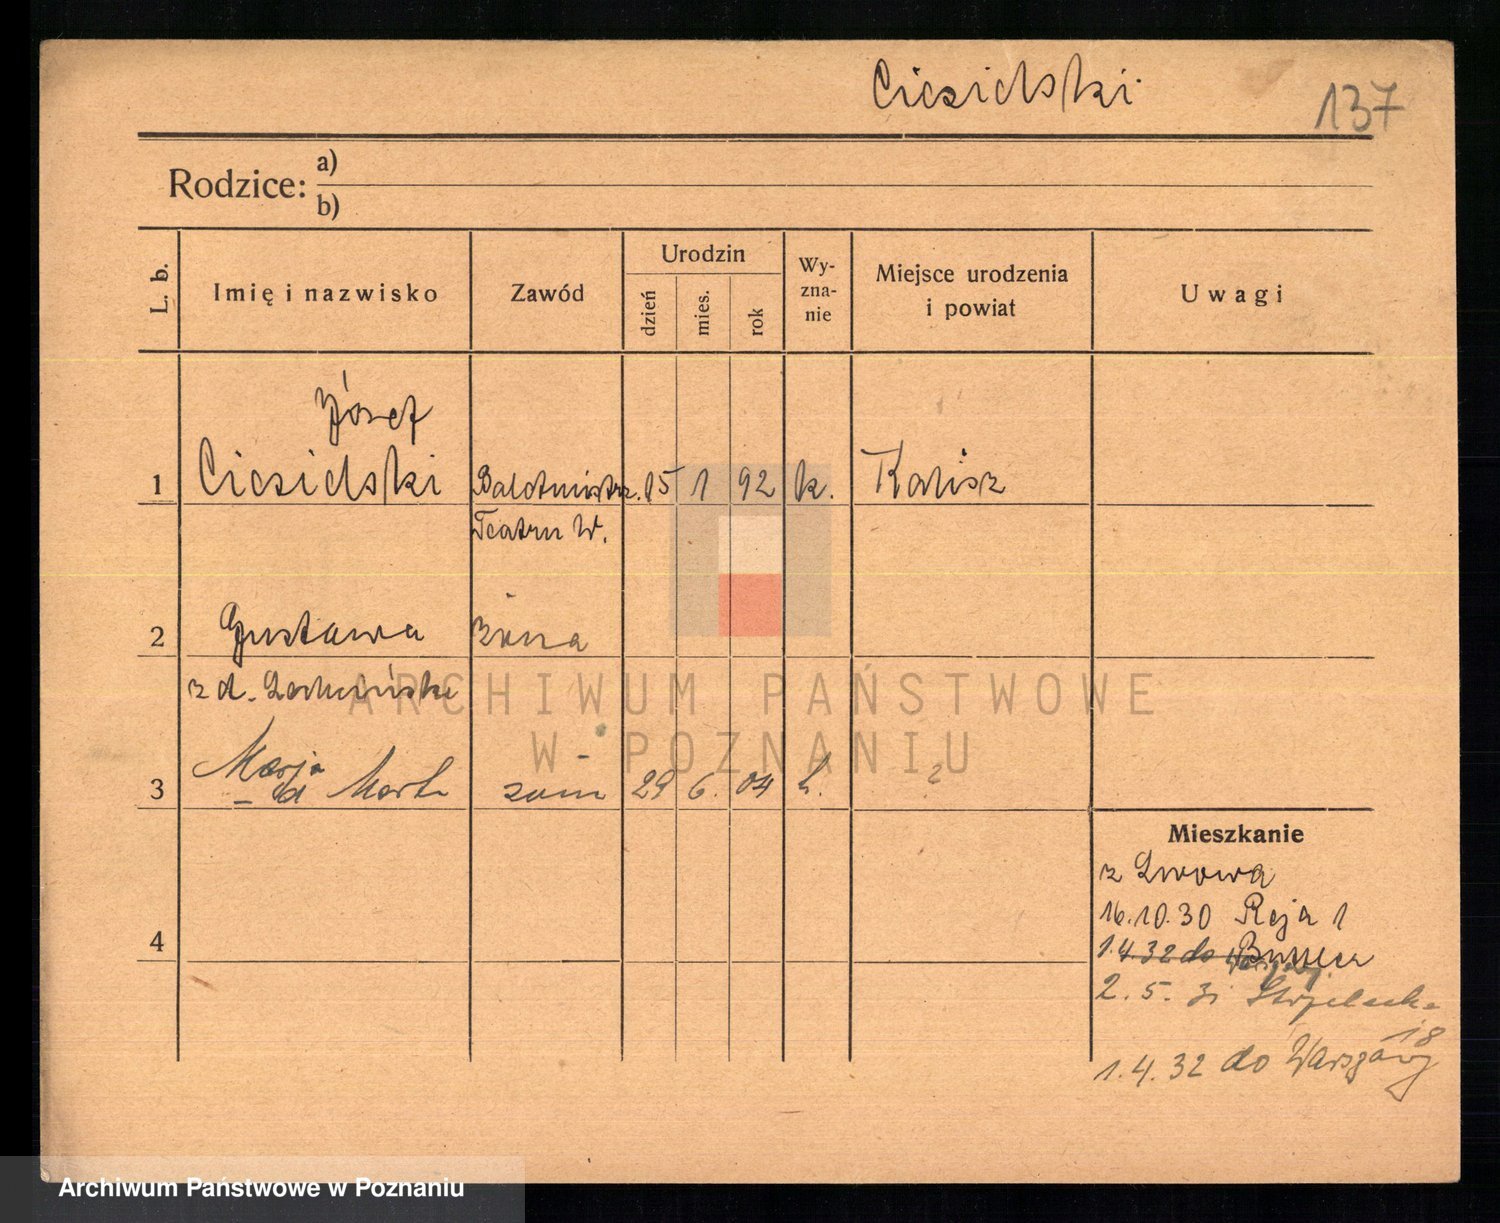 Ciesielski
137
Rodzice: a)
b)
L. b.
Imię i nazwisko
Zawód
Urodzin
dzień
mies.
rok
Wy-
zna-
nie
Miejsce urodzenia
i powiat
Uwagi
Józef
1 Ciesielski Baletmistrz. 15 1 92 k. Kalisz
Teatru W.
2 Gustawa żona
z d.
ARCHIWUM PAŃSTWOWE
W POZNANIU
3 Marja 29 6. 04 k. ?
Mieszkanie
z Lwowa
16.10.30 Reja 1
4
1.4.32 do
2. 5. 31
18
1.4.32 do Warszawy
Archiwum Państwowe w Poznaniu